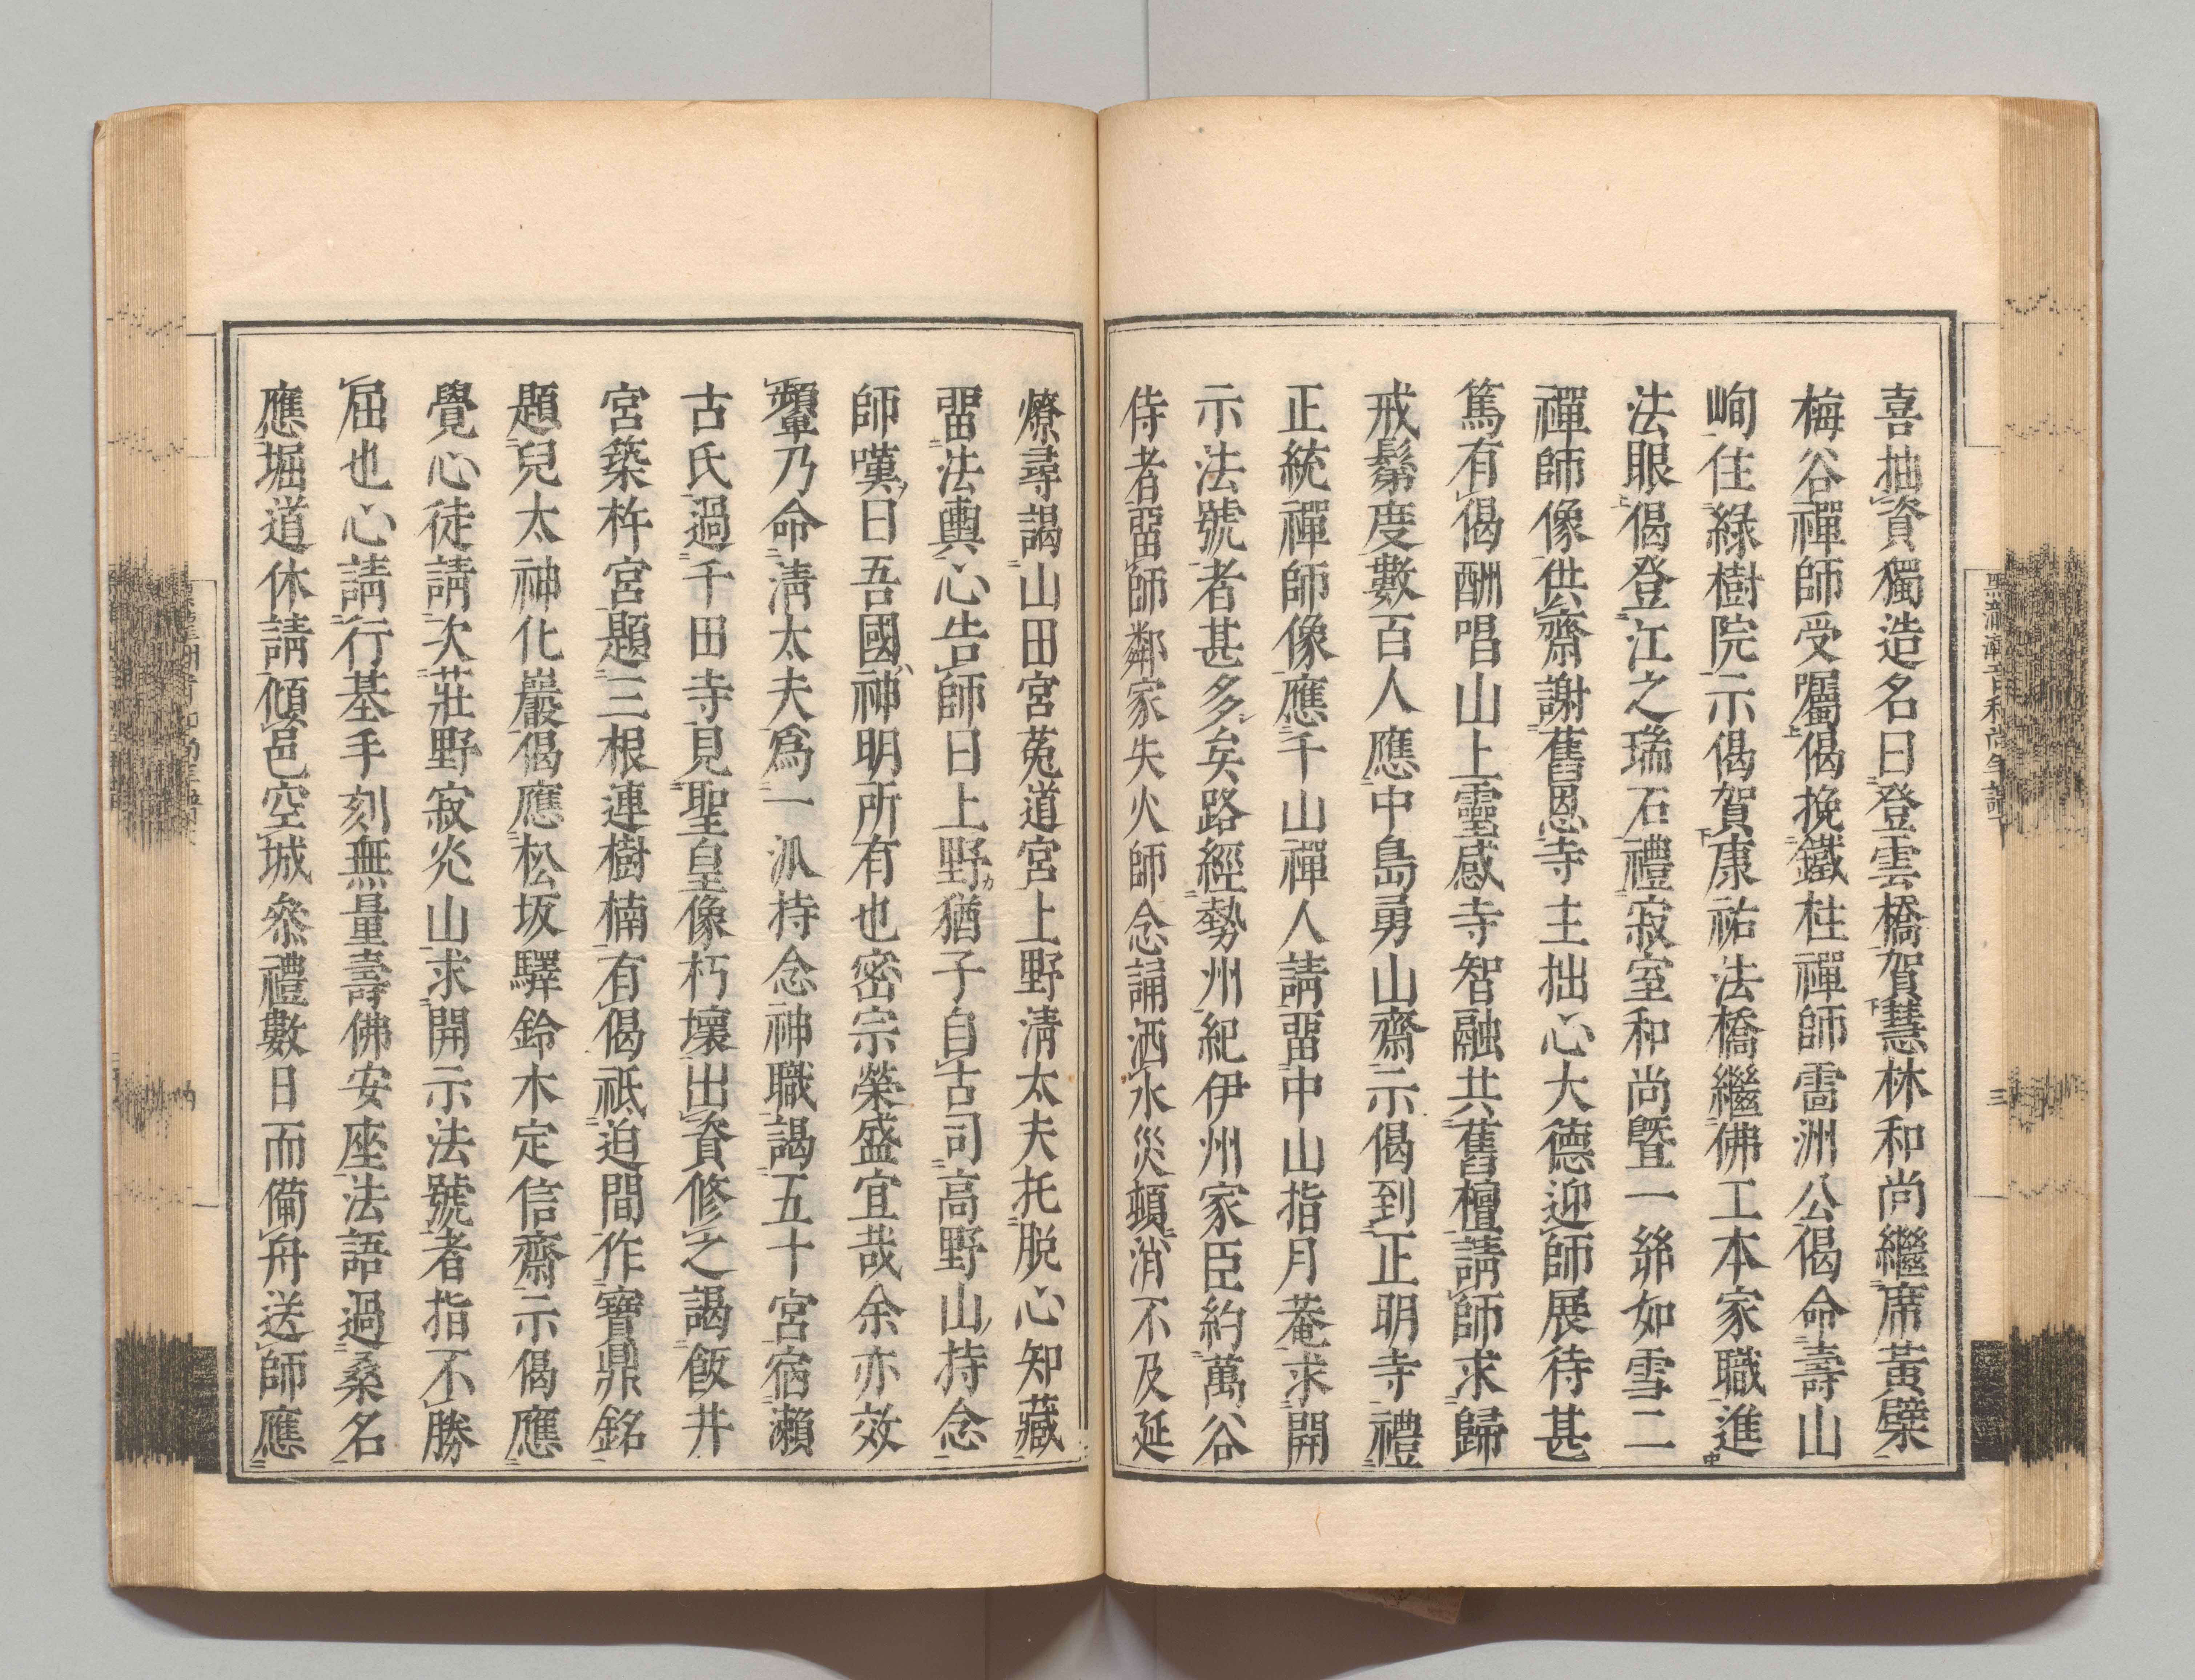 喜抽資獨造名曰登雲橋賀慧林和尚繼席黃檗
梅谷禪師受囑偈挽鐵柱禪師雪洲公偈命壽山
峋住綠樹院示偈賀康祐法橋繼佛工本家職進
法眼偈登江之瑞石禮寂室和尚曁一絲如雪二
禪師像供齋謝舊恩寺主拙心大德迎師展待甚
篤有偈酬唱山上靈感寺智融共舊檀請師求歸
戒鬀度數百人應中島勇山齋示偈到正明寺禮
正統禪師像應千山禪人請畱中山指月菴求開
示法號者甚多矣路經勢州紀伊州家臣約萬谷
侍者畱師鄰家失火師念誦洒水災頓消不及延
燎尋謁山田宮菟道宮上野淸太夫托脫心知藏
畱法輿心告師曰上野猶子自古司高野山持念
師嘆曰吾國神明所有也密宗榮盛宜哉余亦效
顰乃命淸太夫爲一派持念神職謁五十宮宿瀨
古氏過千田寺見聖皇像朽壞出資修之謁飯井
宮築杵宮題三根連樹楠有偈祗迫間作寶鼎銘
題兒太神化巖偈應松坂驛鈴木定信齋示偈應
覺心徒請次莊野寂光山求開示法號者指不勝
屈也心請行基手刻無量壽佛安座法語過桑名
應堀道休請傾邑空城叅禮數日而備舟送師應
三